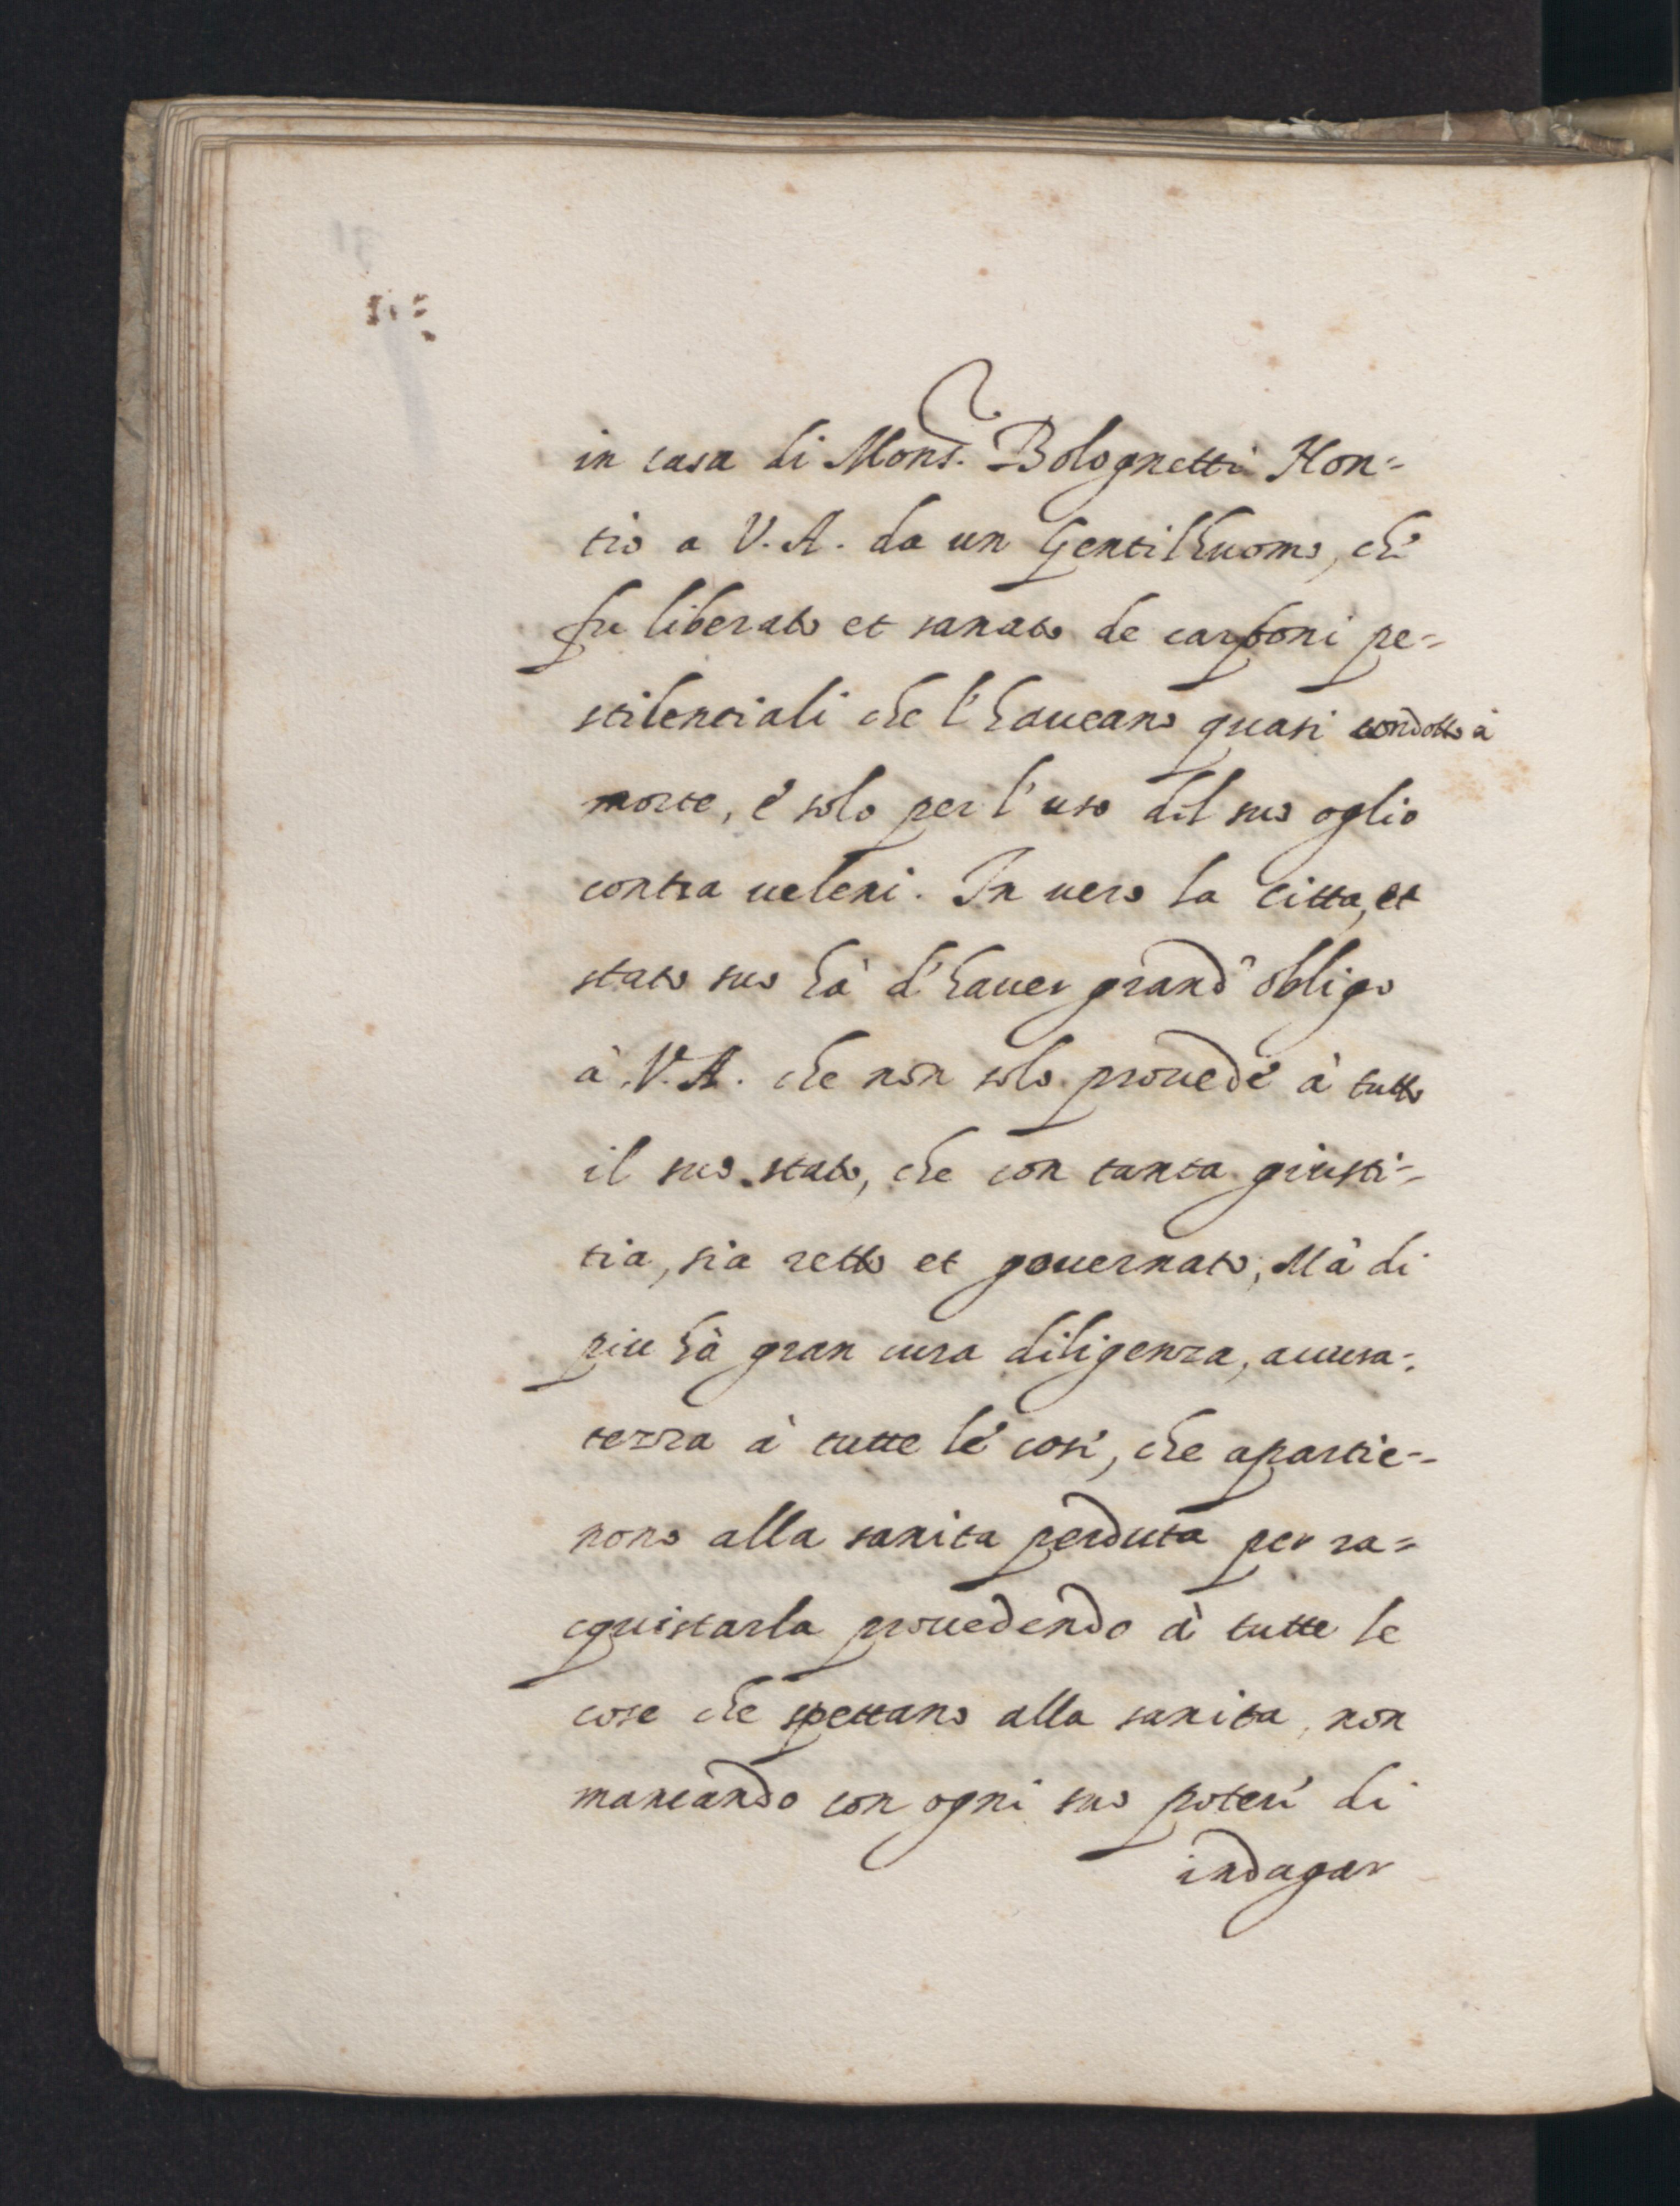 in casa di Mons. Bolognetti Non=
tio a V. A. da un Gentilhuomo, ch'è
fu liberato et sanato de carboni pe=
stilentiali che l'haueano quasi condotto à
morte, è solo per l'uso del suo oglio
contra ueleni. In uero la citta, et
stato suo hà d'hauer grand'obligo
à V. A. che non solo prouedè à tutto
il suo stato, che con tanta giusti=
tia, sia retto et gouernato; Mà di
piu hà gran cura diligenza, accura=
tezza à tutte lè cosè, che apartie=
nono alla sanita perduta per ra=
cquistarla prouedendo à tutte le
cose che spettano alla sanita, non
mancando con ogni suo poterè di
indagar